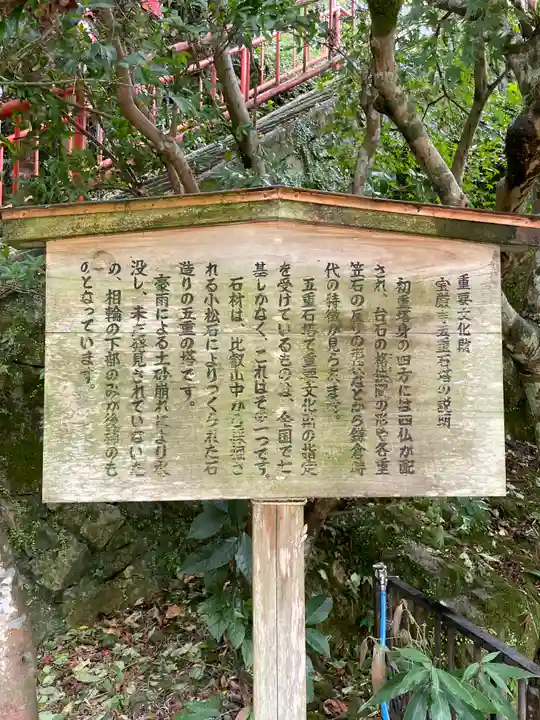 重要文化財
宝厳寺五重石塔の説明
初重塔身の四方には四仏が配
され、台石の格狭間の形や各重
笠石の反りの形状などから鎌倉時
代の特徴が見られます。
五重石塔で重要文化財の指定
を受けているものは、全国で七
基しかなく、これはその一つです。
石材は、比叡山中から採掘さ
れる小松石によりつくられた石
造りの五重の塔です。
豪雨による土砂崩れにより水
没し、未だ発見されていないた
め、相輪の下部のみが後補のも
のとなっています。